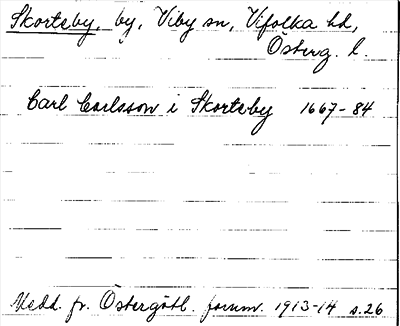 Skorteby, by, Viby sn, Vifolka hd,
Österg. l.
Carl Carlsson i Skorteby 1667-84
Medd. fr. Östergötl. fornm. 1913-14 s. 26